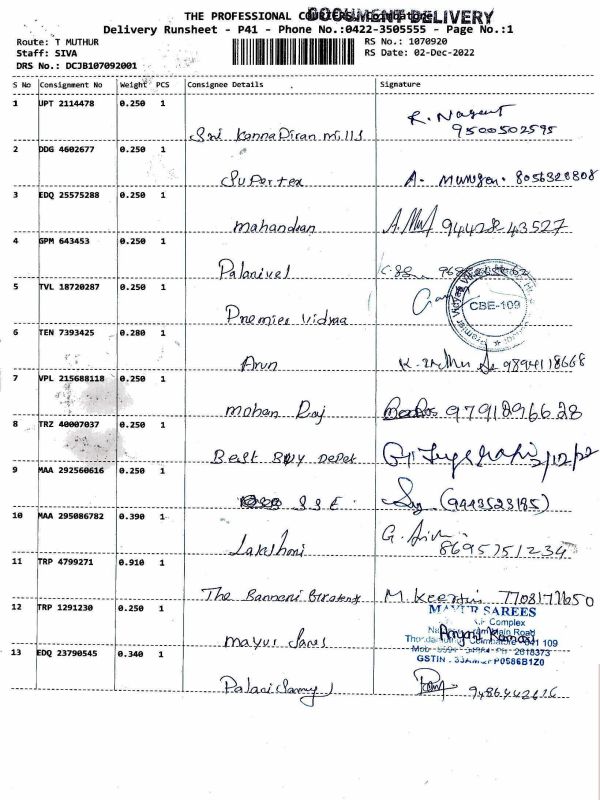 THE PROFESSIONAL COURIERS, Coimbatore
DOCUMENT DELIVERY
Delivery Runsheet - P41 - Phone No.:0422-3505555 - Page No.:1
Route: T MUTHUR RS No.: 1070920
Staff: SIVA RS Date: 02-Dec-2022
DRS No.: DCJB107092001
S No Consignment No Weight PCS Consignee Details Signature
1 UPT 2114478 0.250 1
Sri Kanna Diran mills R. Nagent 9500502595
2 DDG 4602677 0.250 1
Supertex A. Murugan. 8056328808
3 EDQ 25575288 0.250 1
mahandran
4 GPM 643453 0.250 1
Palanivel
5 TVL 18720287 0.250 1
Premier Vidyaa CBE-109
6 TEN 7393425 0.280 1
Arun 9894118668
7 VPL 215688118 0.250 1
mohan Raj 9791896628
8 TRZ 40007037 0.250 1
Best Buy Depot 2/12/22
9 MAA 292560616 0.250 1
S S E. (9443523185)
10 MAA 295086782 0.390 1
Lakshmi G. Siva 8695751234
11 TRP 4799271 0.910 1
The Bannari M. Keerthi
MAYUR SAREES
Complex
Main Road
12 TRP 1291230 0.250 1
109
2618373
mayur Sarees GSTIN :
13 EDQ 23790545 0.340 1
Palani Samy